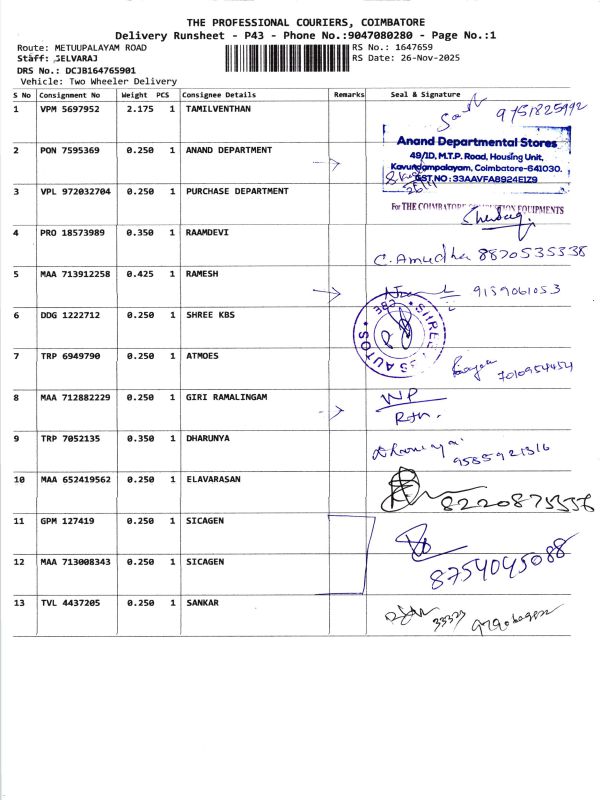 THE PROFESSIONAL COURIERS, COIMBATORE
Delivery Runsheet - P43 - Phone No.:9047080280 - Page No.:1
Route: METUUPALAYAM ROAD RS No.: 1647659
Staff: SELVARAJ RS Date: 26-Nov-2025
DRS No.: DCJB164765901
Vehicle: Two Wheeler Delivery
S No Consignment No Weight PCS Consignee Details Remarks Seal & Signature
1 VPM 5697952 2.175 1 TAMILVENTHAN 9751825992
2 PON 7595369 0.250 1 ANAND DEPARTMENT
Anand Departmental Stores
49/1D, M.T.P. Road, Housing Unit,
Kavundampalayam, Coimbatore-641030.
GST.NO : 33AAVFA8924E1Z9
3 VPL 972032704 0.250 1 PURCHASE DEPARTMENT
For THE COIMBATORE EQUIPMENTS
4 PRO 18573989 0.350 1 RAAMDEVI
C. Amudha 8870535338
5 MAA 713912258 0.425 1 RAMESH 9159061053
6 DDG 1222712 0.250 1 SHREE KBS
SHREE AUTOS
7 TRP 6949790 0.250 1 ATMOES
8 MAA 712882229 0.250 1 GIRI RAMALINGAM WP
9 TRP 7052135 0.350 1 DHARUNYA
9585921316
10 MAA 652419562 0.250 1 ELAVARASAN
11 GPM 127419 0.250 1 SICAGEN
12 MAA 713008343 0.250 1 SICAGEN 8754045088
13 TVL 4437205 0.250 1 SANKAR